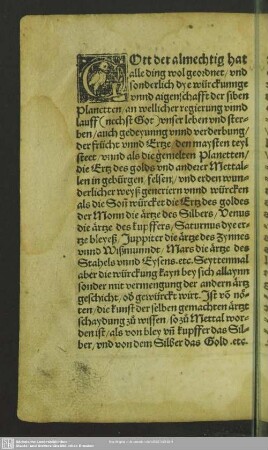 GOtt der almechtig hat
alle ding wol geordnet / vnd
sonderlich dye würckunnge
vnnd aigenschafft der siben
Planetten / an wellicher regierung vnnd
lauff (nechst Got) vnser leben vnd ster-
ben / auch gedeyunng vnnd verderbung /
der frücht vnnd Ertze / den maysten teyl
steet / vnnd als die gemelten Planetten /
die Ertz des golds vnd anderer Mettal-
len in gebürgen / felsen / vnd erden wun-
derlicher weyß generiern vnnd würcken
als die Soñ würcket die Ertz des goldes
der Monn die ärtze des Silbers / Venus
die ärtze des kupffers / Saturnus dye ert-
ze bleyeß / Juppiter die ärtze des Zynnes
vnnd Wißmunndt / Mars die ärtze des
Stahels vnnd Eysens. etc. Seyttenmal
aber die würckung kayn bey sich allaynn
sonder mit vermengung der andern ärtz
geschicht / ob gewürckt wirt. Ist võ nö-
ten / die kunst der selben gemachten ärtzt
schaydung zů wissen / so zů Mettal wor-
den ist / als von bley vñ kupffer das Sil-
ber / vnd von dem Silber das Gold. etc.